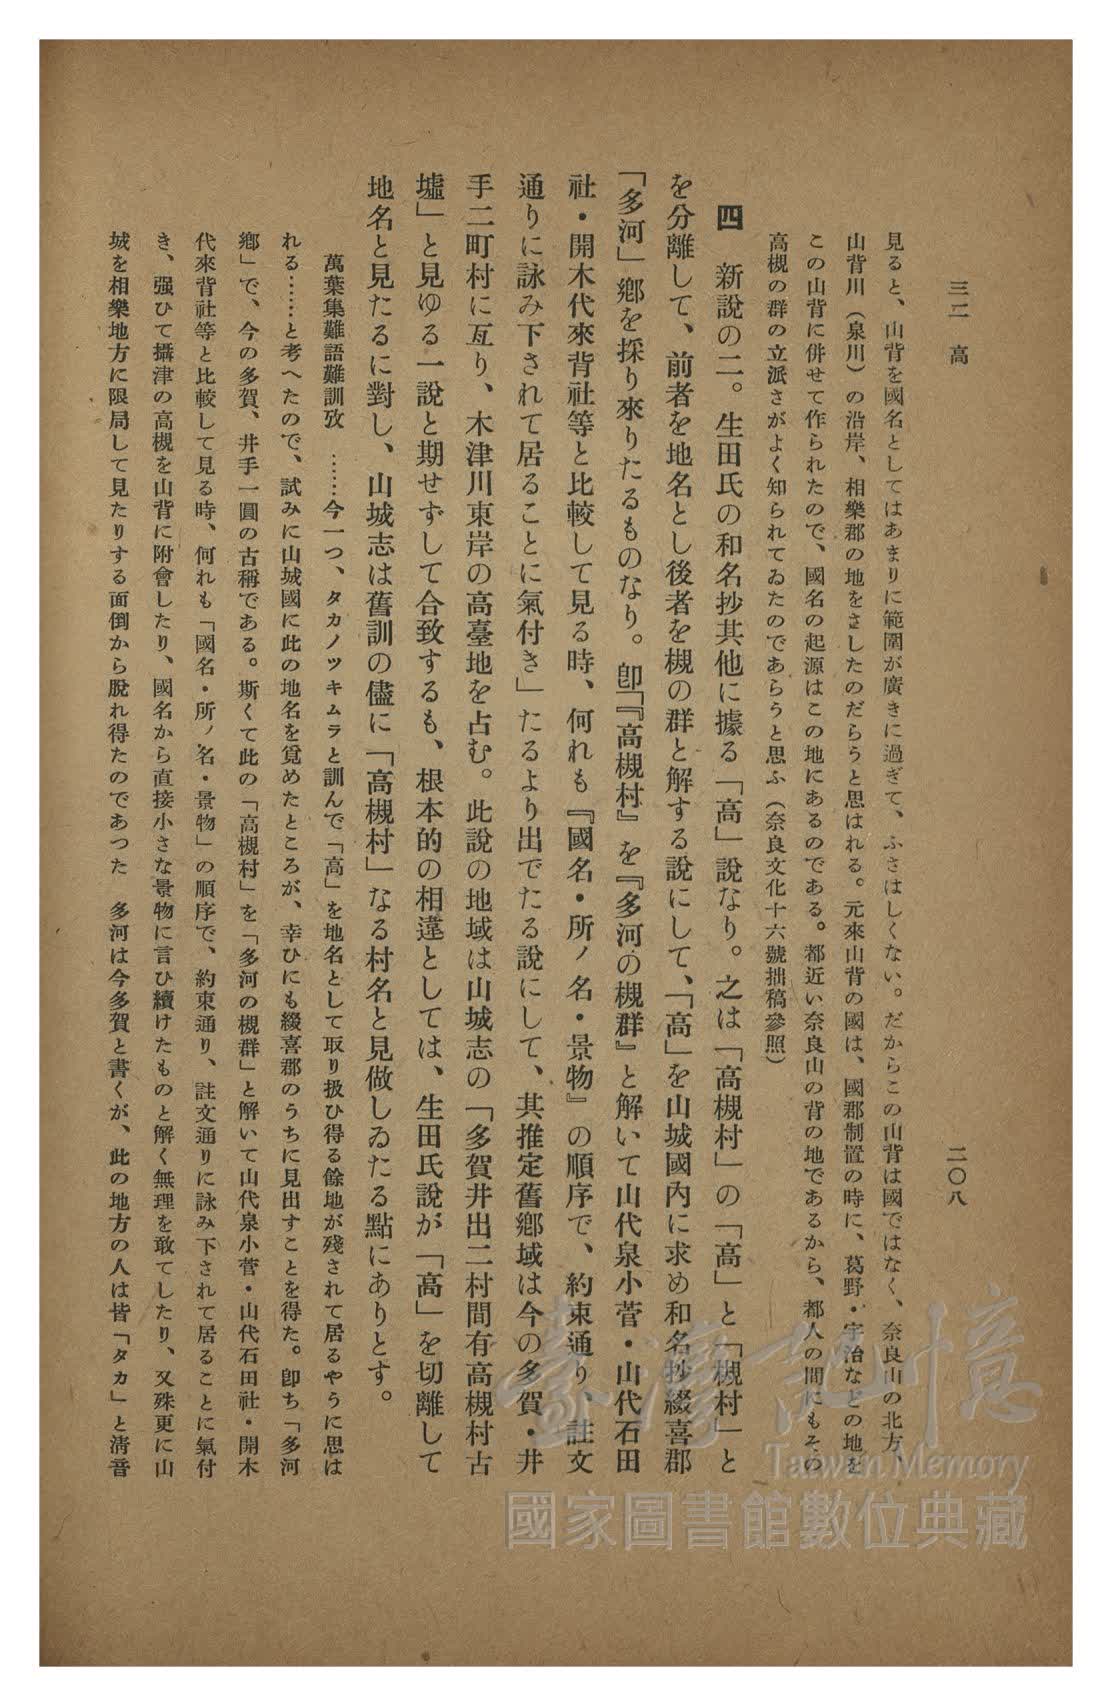 三二　高
二〇八
見ると、山背を國名としてはあまりに範圍が廣きに過ぎて、ふさはしくない。だからこの山背は國ではなく、奈良山の北方、
山背川（泉川）の沿岸、相樂郡の地をさしたのだらうと思はれる。元來山背の國は、國郡制置の時に、葛野・宇治などの地を
この山背に併せて作られたので、國名の起源はこの地にあるのである。都近い奈良山の背の地であるから、都人の間にもその
高槻の群の立派さがよく知られてゐたのであらうと思ふ（奈良文化十六號拙稿參照）
四　新說の二。生田氏の和名抄其他に據る「高」說なり。之は「高槻村」の「高」と「槻村」と
を分離して、前者を地名とし後者を槻の群と解する說にして、「高」を山城國內に求め和名抄綴喜郡
「多河」鄕を採り來りたるものなり。卽「『高槻村』を『多河の槻群』と解いて山代泉小菅・山代石田
社・開木代來背社等と比較して見る時、何れも『國名・所ノ名・景物』の順序で、約束通り、註文
通りに詠み下されて居ることに氣付き」たるより出でたる說にして、其推定舊鄕域は今の多賀・井
手二町村に亙り、木津川東岸の高臺地を占む。此說の地域は山城志の「多賀井出二村間有高槻村古
墟」と見ゆる一說と期せずして合致するも、根本的の相違としては、生田氏說が「高」を切離して
地名と見たるに對し、山城志は舊訓の儘に「高槻村」なる村名と見做しゐたる點にありとす。
萬葉集難語難訓攷　……今一つ、タカノツキムラと訓んで「高」を地名として取り扱ひ得る餘地が殘されて居るやうに思は
れる……と考へたので、試みに山城國に此の地名を覓めたところが、幸ひにも綴喜郡のうちに見出すことを得た。卽ち「多河
鄕」で、今の多賀、井手一圓の古稱である。斯くて此の「高槻村」を「多河の槻群」と解いて山代泉小菅・山代石田社・開木
代來背社等と比較して見る時、何れも「國名・所ノ名・景物」の順序で、約束通り、註文通りに詠み下されて居ることに氣付
き、强ひて攝津の高槻を山背に附會したり、國名から直接小さな景物に言ひ續けたものと解く無理を敢てしたり、又殊更に山
城を相樂地方に限局して見たりする面倒から脫れ得たのであつた　多河は今多賀と書くが、此の地方の人は皆「タカ」と淸音
臺灣記憶
Taiwan Memory
國家圖書館數位典藏